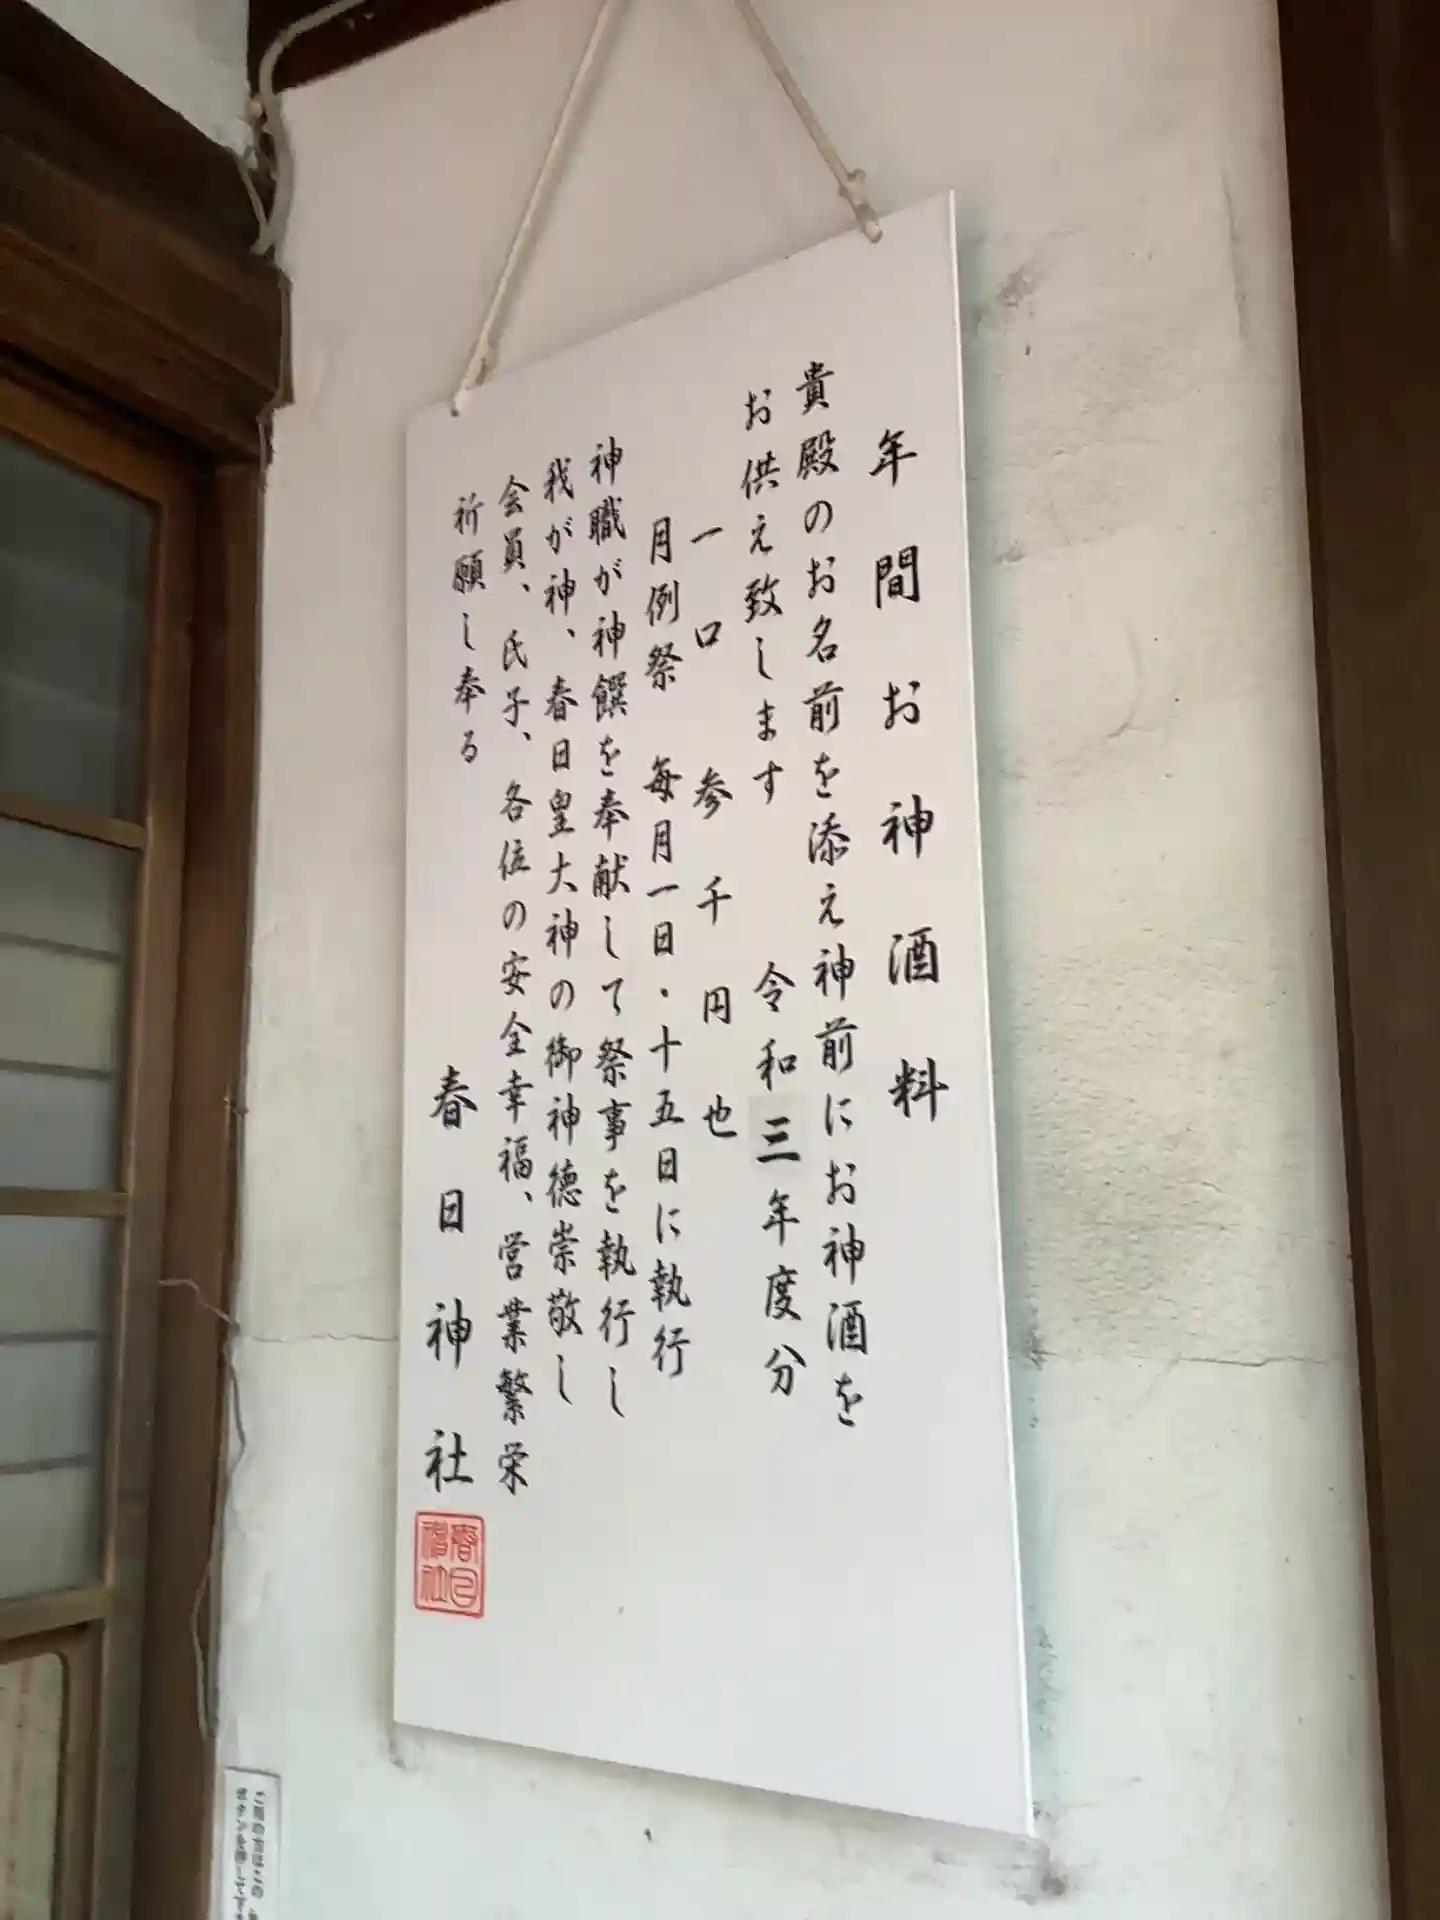 年間お神酒料
貴殿のお名前を添え神前にお神酒を
お供え致します　令和三年度分
一口　参千円也
月例祭　毎月一日・十五日に執行
神職が神饌を奉献して祭事を執行し
我が神、春日皇大神の御神徳崇敬し
会員、氏子、各位の安全幸福、営業繁栄
祈願し奉る
春日神社
春日
神社